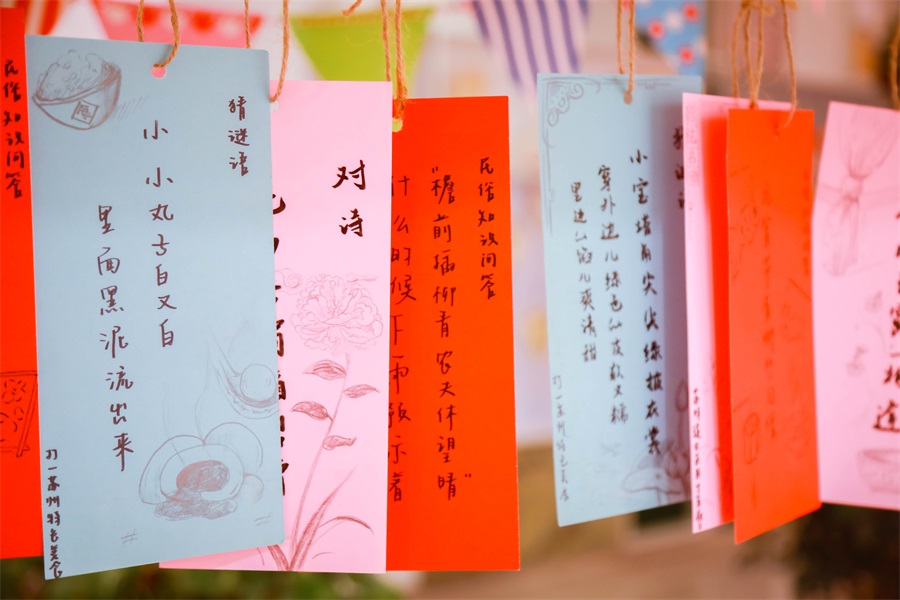 民俗知识问答
猜谜语
小小丸子白又白
里面黑泥流出来
打一苏州特色美食
对诗
民俗知识问答
"檐前插柳青农夫休望晴"
什么的时候下雨预示着
小宝塔角尖尖绿披衣裳
穿外边儿绿色的皮软又糯
里边的馅儿爽清甜
打一苏州特色美食